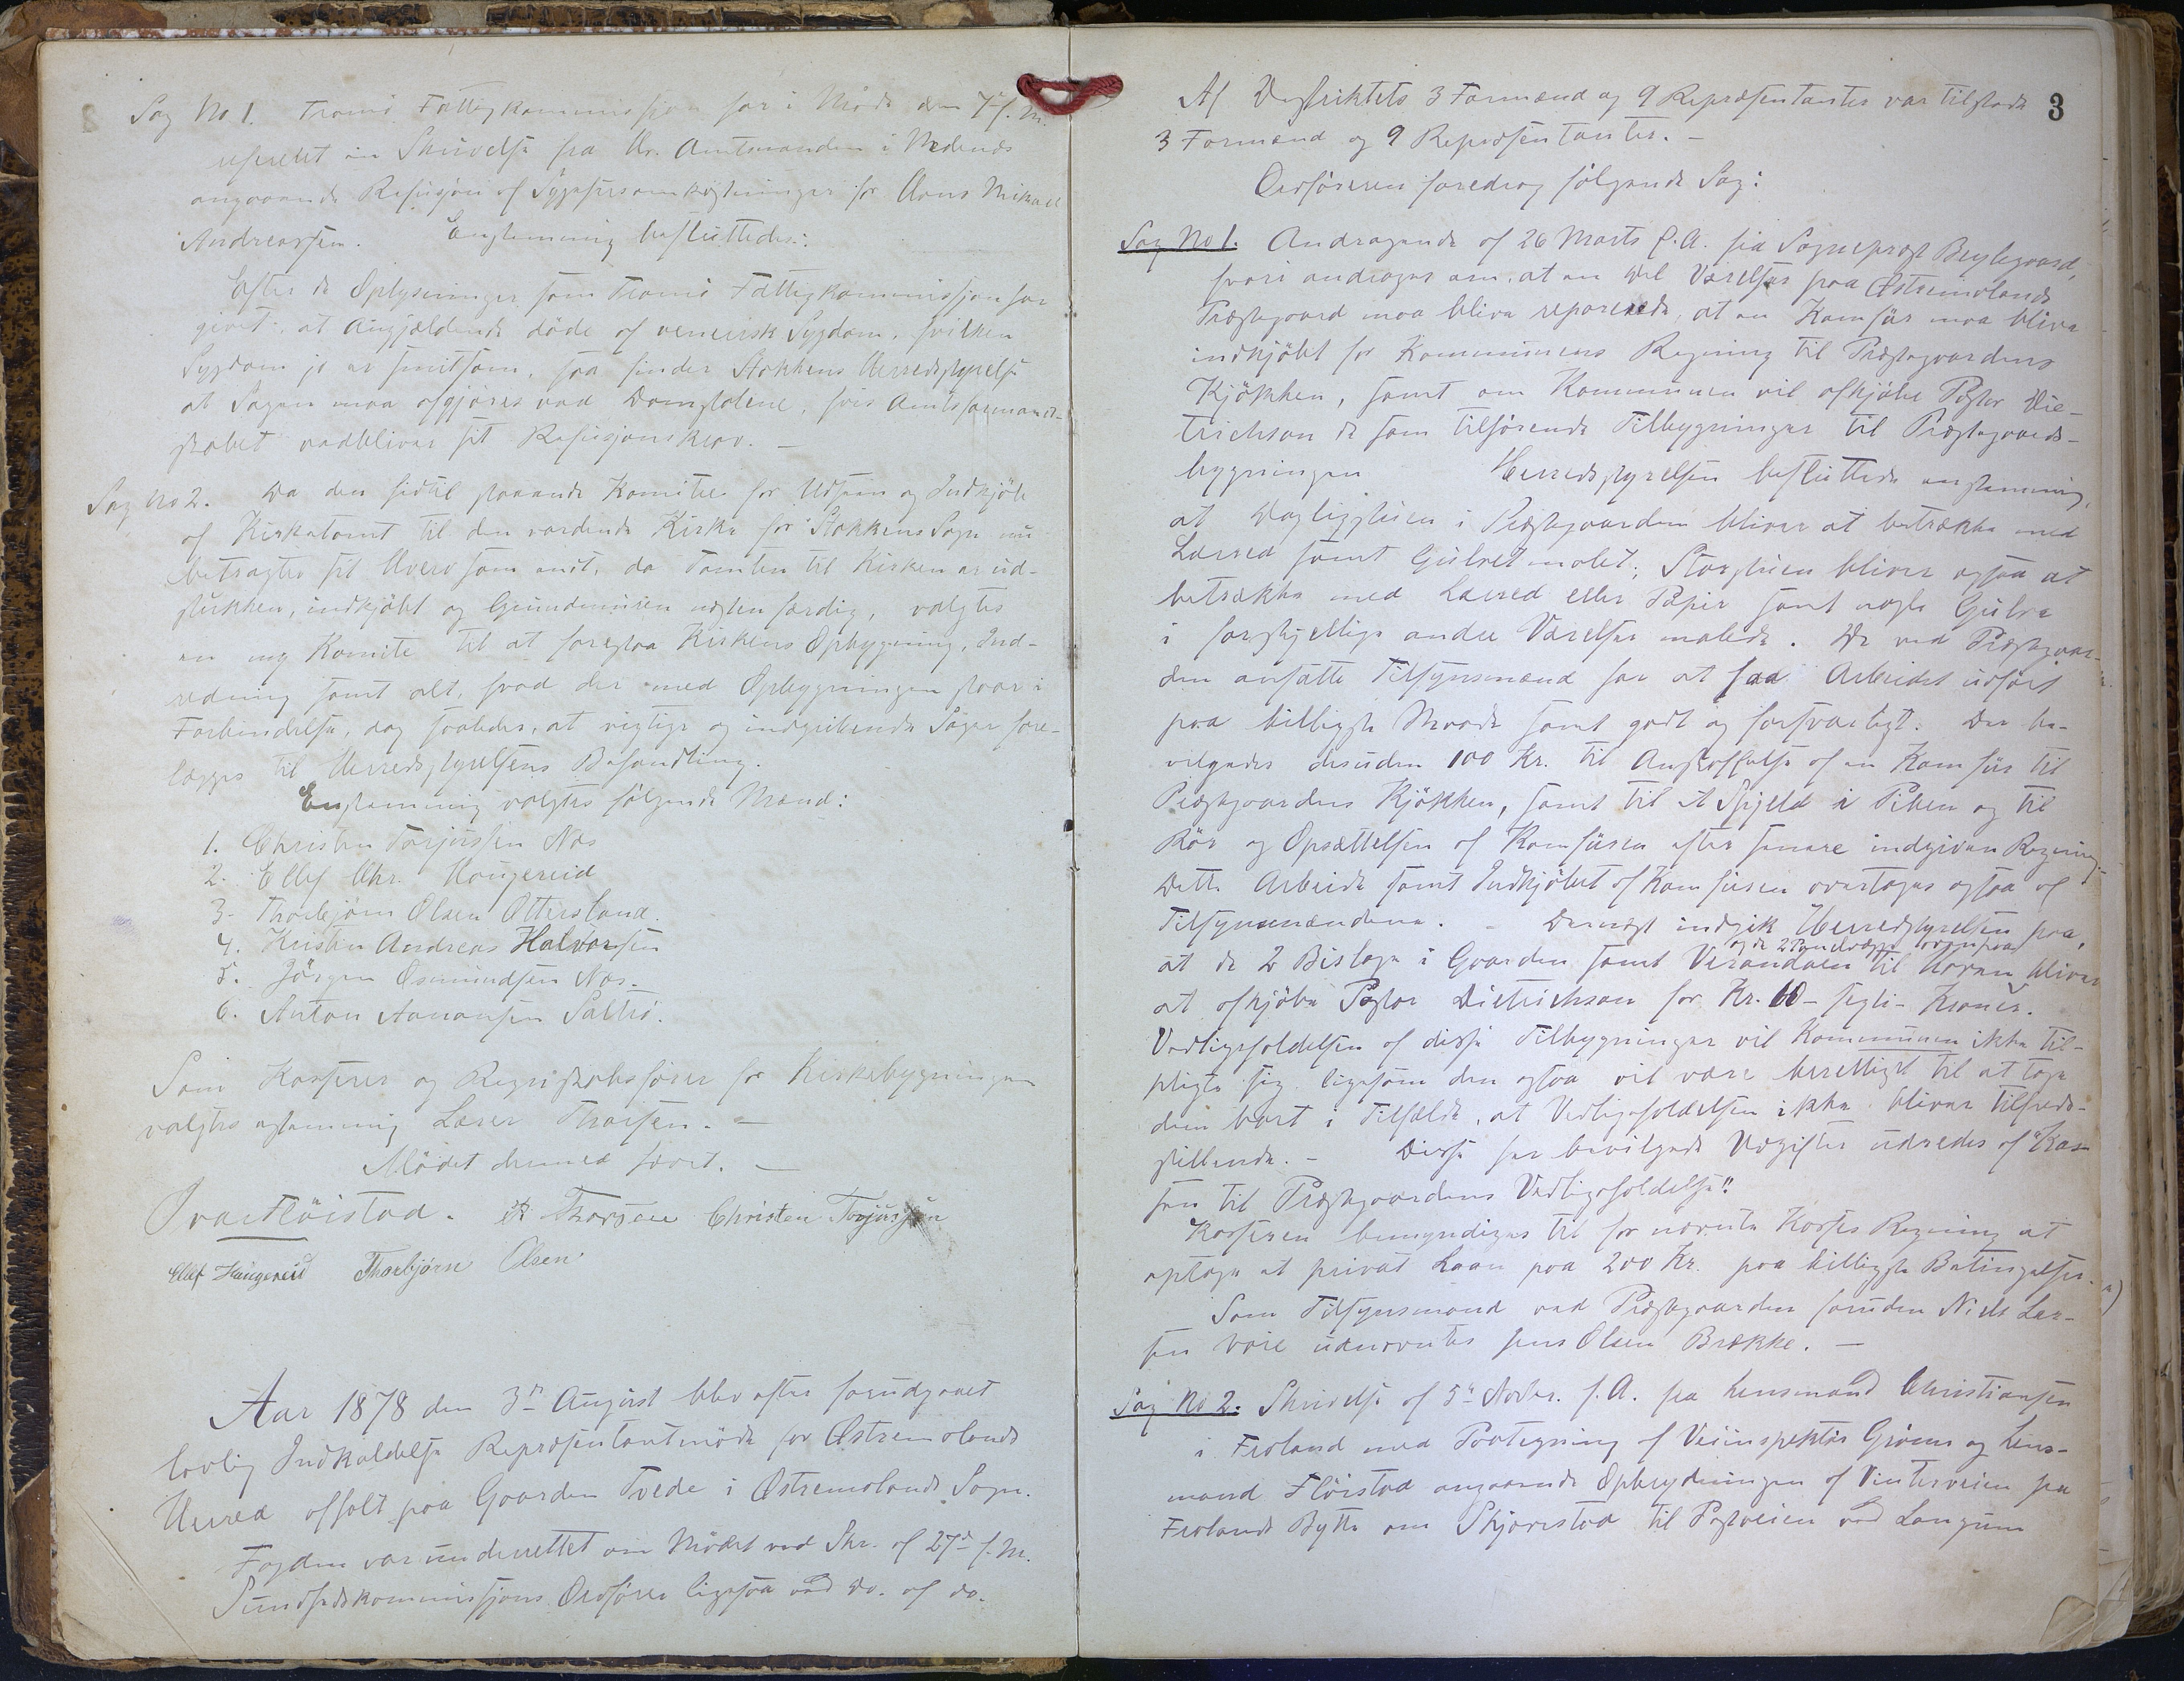 Sag No 1. Tromö Fattigkommission har i Møde den 7de f. M.
referert en Skrivelse fra Hr. Amtmanden i Nedenæs
angaaende Refusjon af Sygehusomkostninger for Hans Mikael
Andreassen. Enstemmig besluttedes:
Efter de Oplysninger som Tromö Fattigkommissjon har
givet, at Angjældende døde af venerisk Sygdom, hvilken
Sygdom jo er smitsom, saa finder Stokkens Herredsstyrelse
at Sagen maa afgjøres ved Domstolene, hvis Amtsformand-
skabet vedbliver sit Refusjonskrav. —
Sag No 2. Da den hidtil staaende Komitee for Udseen og Indkjøb
af Kirketomt til den vordende Kirke for Stokkens Sogn nu
betragter sit Hverv som endt, da Tomten til Kirken er ud-
stukken, indkjøbt og Grundmuren næsten færdig, valgtes
en ny Komite til at forestaa Kirkens Opbygning, Ind-
redning samt alt, hvad der med Opbygningen staar i
Forbindelse, dog saaledes, at vigtige og indgribende Sager fore-
lægges til Herredsstyrelsens Behandling.
Enstemmig valgtes følgende Mænd:
1. Christen Torjussen Næs
2. Ellef Chr. Haugereid
3. Thorbjörn Olsen Ottersland.
4. Kristen Andreas Halvorsen
5. Jörgen Osmundsen Næs.
6. Anton Aanonsen Saltrö.
Som Kasserer og Regnskabsfører for Kirkebygningen
valgtes enstemmig Lærer Thorsen. —
Mødet dermed hævet. —
Ivar Flöistad. Thorsen Christen Torjussen
Ellef Haugereid Thorbjørn Olsen
Aar 1878 den 3die August blev efter forudgaaet
lovlig Indkaldelse Repræsentantmøde for Østremolands
Herred afholt paa Gaarden Tvede i Østremolands Sogn.
Fogden var underrettet om Mødet ved Skr. af 27de f. M.
Sundhedskommissjons Ordfører ligesaa ved do. af do.
3
Af Distriktets 3 Formænd og 9 Repræsentanter var tilstede
3 Formænd og 9 Repræsentanter. —
Ordføreren foredrog følgende Sag:
Sag No 1. Andragende af 26 Marts d. A. fra Sogneprest Beylegaard,
hvori andrages om, at en Del Værelser paa Østremolands
Præstegaard maa blive reparerede, at en Komfur maa blive
indkjöbt for Kommunens Regning til Præstegaardens
Kjökken, samt om Kommunen vil afkjøbe Pastor Die-
trichson de ham tilhørende Tilbygninger til Præstegaards-
bygningen Herredsstyrelsen besluttede enstemmig,
at Dagligstuen i Præstegaarden bliver at betrække med
Lærred samt Gulvet malet; Storstuen bliver ogsaa at
betrække med Lærred eller Papir samt nogle Gulve
i forskjellige andre Værelser malede. De ved Præstegaar-
den ansatte Tilsynsmænd har at faa Arbeidet udført
paa billigste Maade samt godt og forsvarligt. Der be-
vilgedes desuden 100 Kr. til Anskaffelse af en Komfur til
Præstegaardens Kjökken, samt til et Spjeld i Piben og til
Rör og Opsættelsen af Komfuren efter senere indgiven Regning.
Dette Arbeide samt Indkjøbet af Komfuren overtages ogsaa af
Tilsynsmændene. — Dernæst indgik Herredsstyrelsen paa,
og de 2 ovenpaa
at de 2 Bislage i Gaarden samt Verandaen til Haven bliver
at afkjøbe Pastor Dietrichson for Kr. 60 - sexti - Kroner.
Vedligeholdelsen af disse Tilbygninger vil Kommunen ikke til-
pligte sig ligesom den ogsaa vil være berettiget til at tage
dem bort i Tilfælde, at Vedligeholdelsen ikke bliver tilfreds-
stillende. — Disse her bevilgede Udgifter udredes af Kas-
sen til "Præstegaardens Vedligeholdelse".
Kasseren bemyndiges til for nævnte Kasses Regning at
optage et privat Laan paa 200 Kr. paa billigste Betingelser.
Som Tilsynsmænd ved Præstegaarden foruden Niels Lar-
sen udnævntes Jens Olsen Brække. —
Sag No 2. Skrivelse af 5te Novbr. f. A. fra Lensmand Christiansen
i Froland med Paategning af Veiinspektör Gröners og Lens-
mand Flöistad angaaende Opbrydningen af Vinterveien fra
Frolands Bytte om Skjævestad til Postveien ved Langum